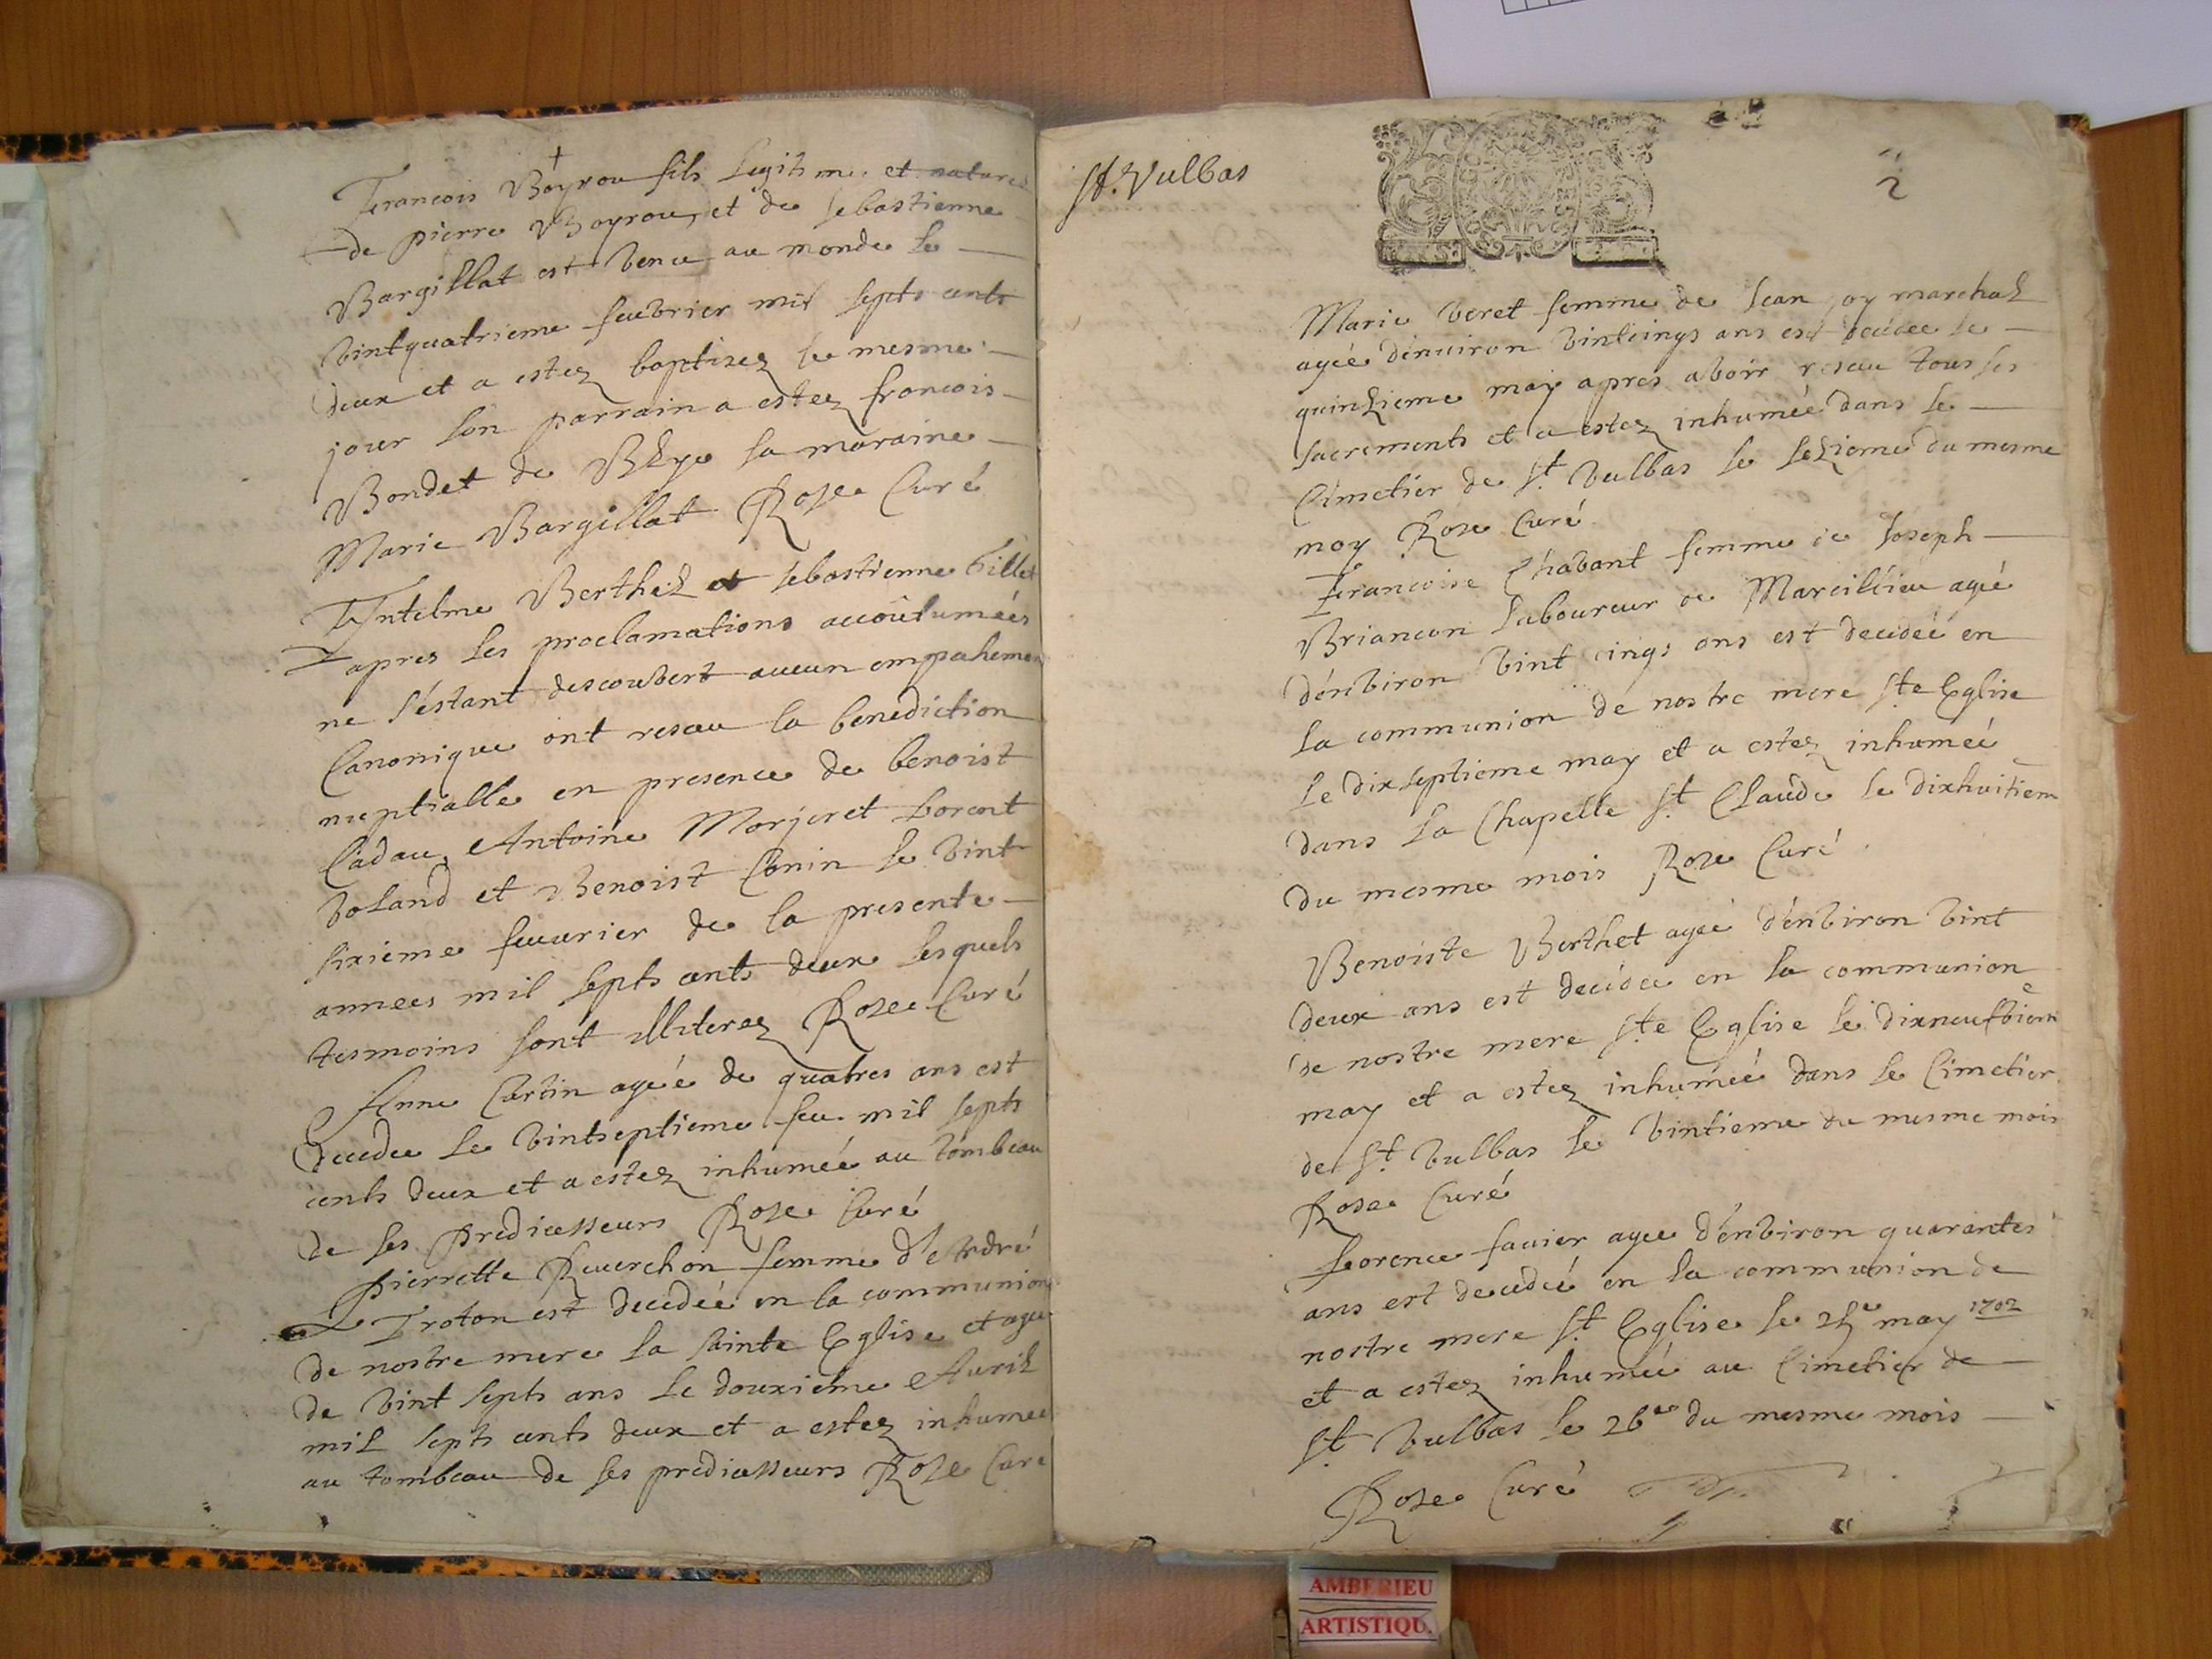 Francois Boyron fils legitime et naturel
de pierre Boyron, et de sebastienne
Bargillat est venu au monde le
vintquatrieme feuvrier mil septs cents
deux et a estez baptisez le mesme
jour son parrain a estez francois
Bondet de la maraine
Marie Bargillat Roze Curé
Antelme Berthet et sebastienne
apres les proclamations accoutumées
ne s'estant descouvert aucun
Canonique ont reseu la benediction
nuptialle en presence de benoist
Cadau, Antoine Morjeret
et Benoist Conin le vint
sixieme feuvrier de la presente
annees mil septs cents deux lesquels
tesmoins sont illiterez Roze Curé
Anne Curtin ageé de quatres ans est
decedee le vintseptieme feu. mil septs
cents deux et a estez inhumeé au tombeau
de ses predicesseurs Roze Curé
Pierrette Reuerchon femme d'Andre
Troton est decedeé en la communion
de nostre mere la sainte Eglise et agee
de vint septs ans le douxieme Auril
mil septs cents deux et a estez inhumee
au tombeau de ses predicesseurs Roze Cure
St. Vulbas
2
Marie veret femme de Jean joy marchal
ageé d'enuiron vintcinqs ans est decedee le
quinzieme may apres avoir reseu tous ses
sacrements et a estez inhumeé dans le
Cimetier de St vulbas le sezieme du mesme
moy Roze Curé
Francoise Chavant femme de Joseph
Briancon laboureur de Marcillieu ageé
d'environ vint cinqs ans est decedeé en
la communion de nostre mere Ste Eglise
le dixseptieme may et a estez inhumeé
dans la Chapelle St Claude le dixhuitiem
du mesme mois Roze Curé
Benoiste Berthet ageé d'environ vint
deux ans est decedee en la communion
de nostre mere Ste Eglise le dixneufviem
may et a estez inhumeé dans le Cimetier
de St vulbas le vintieme du mesme mois
Roze Curé
florence fauier agee d'environ quarantes
ans est decedeé en la communion de
nostre mere St Eglise le 25e may 1702
et a estez inhumeé au Cimetier de
St vulbas le 26e du mesme mois
Roze Curé
AMBERIEU
ARTISTIQU